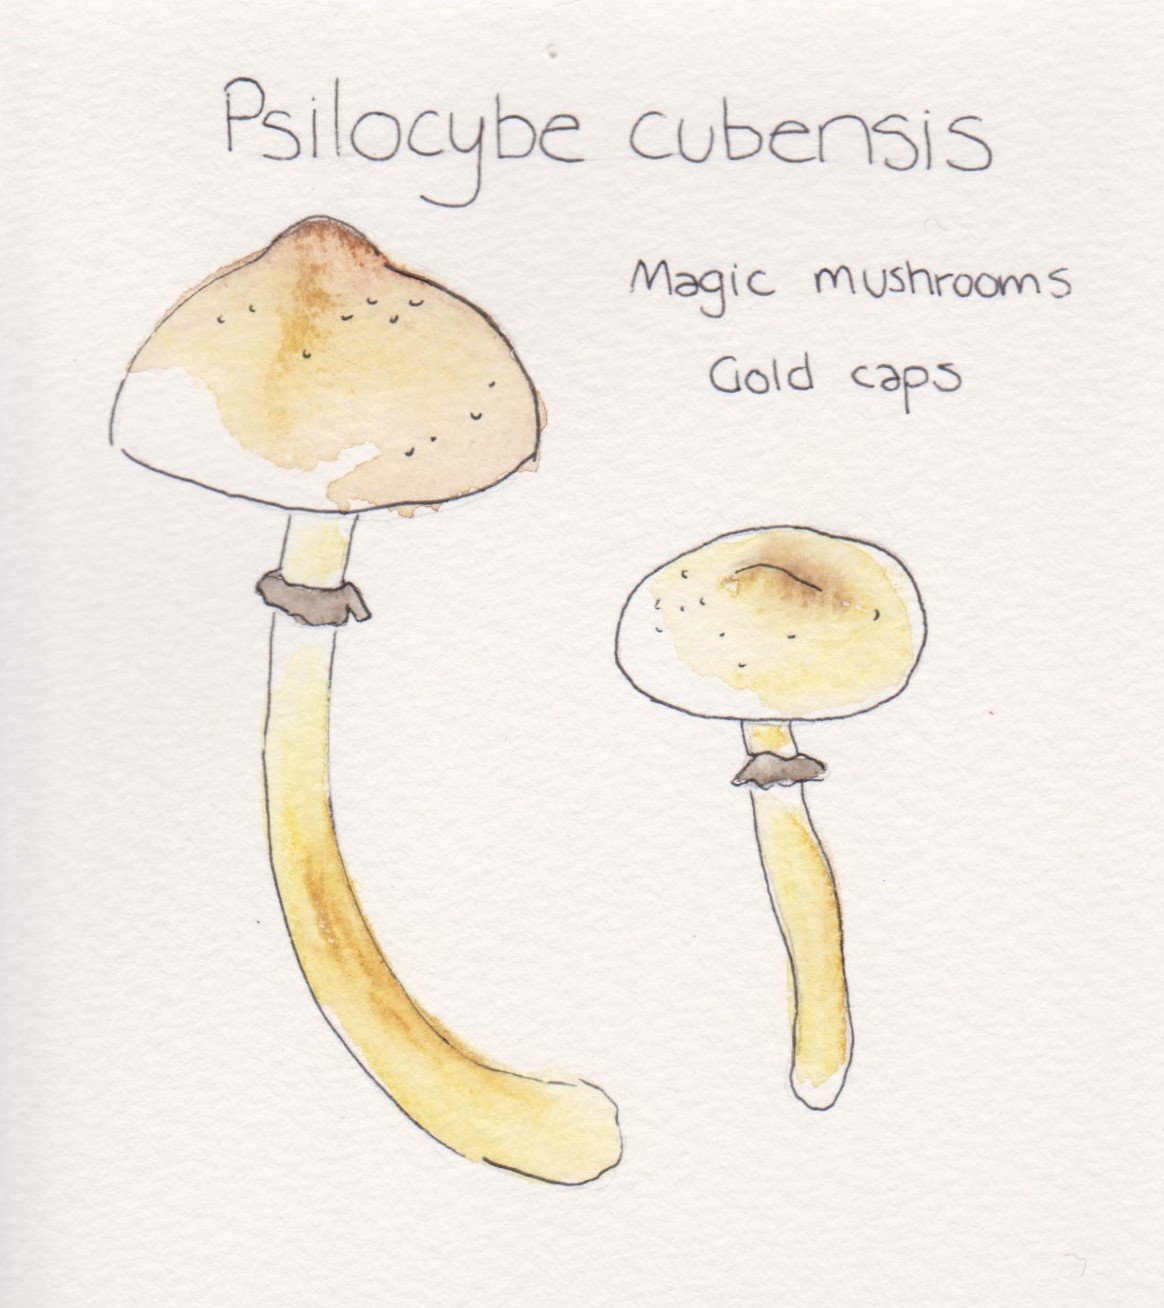 Psilocybe cubensis
Magic mushrooms
Gold caps